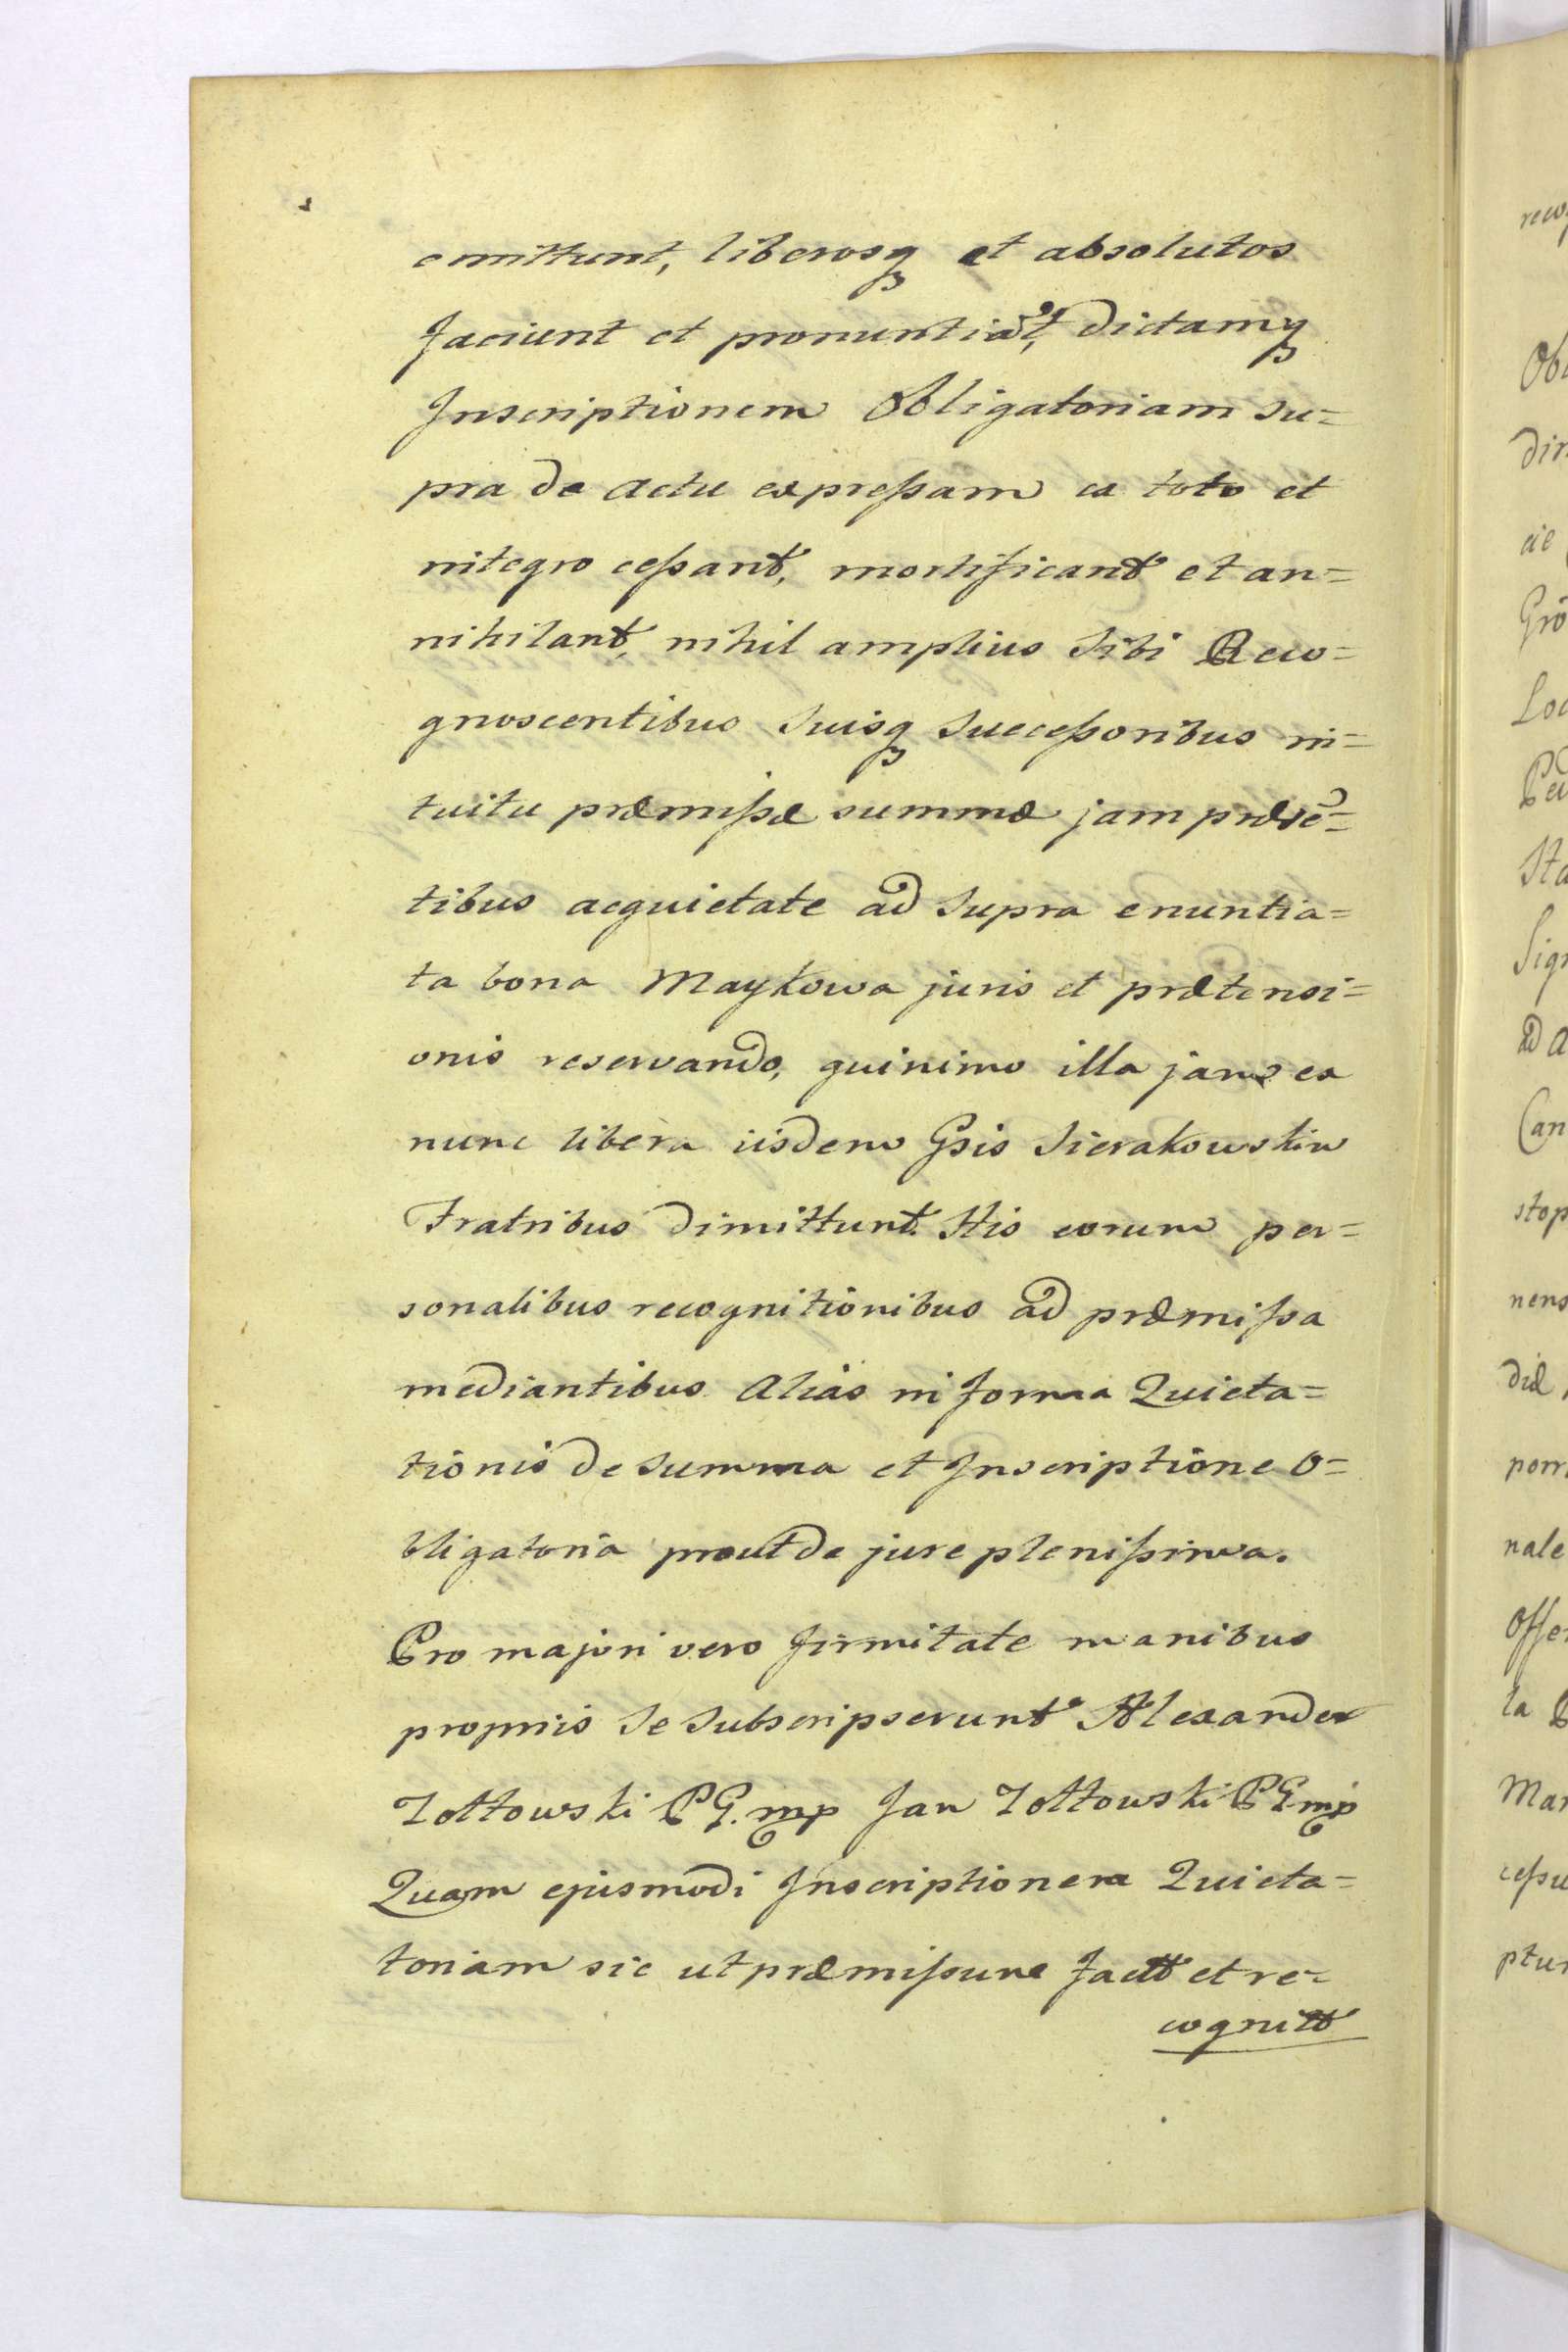 emittunt, liberosq et absolutos
faciunt et pronuntiāt, dictamq
Inscriptionem Obligatoriam su=
pra de actu expreſsam ex toto et
integro ceſsant, mortificant et an=
nihilant, nihil amplius sibi Reco=
gnoscentibus suisq succeſsoribus in=
tuitu præmiſsæ summæ jam præsē=
tibus acquietate ad supra enuntia=
ta bona Maykowa juris et prætensi=
onis reservando, quinimo illa jam ex
nunc libera iisdem Gsis Sierakowskim
Fratribus dimittunt. His eorum per=
sonalibus recognitionibus ad præmiſsa
mediantibus alias in forma Quieta=
tionis de summa et Inscriptione O=
bligatoria prout de jure pleniſsima.
Pro majori vero firmitate manibus
propriis se subscripserunt Alexander
Zołtowski PG. mp Jan Zołtowski PG mp
Quam ejusmodi Inscriptionem Quieta=
toriam sic ut præmiſsum factt et re=
cognitt
reco
Ob
dir
cie
Grō
Loc
Sta
Sig
ad a
Can
stop
nens
diæ
porr
nale
Offe
ta P
Mar
ceſsu
ptur